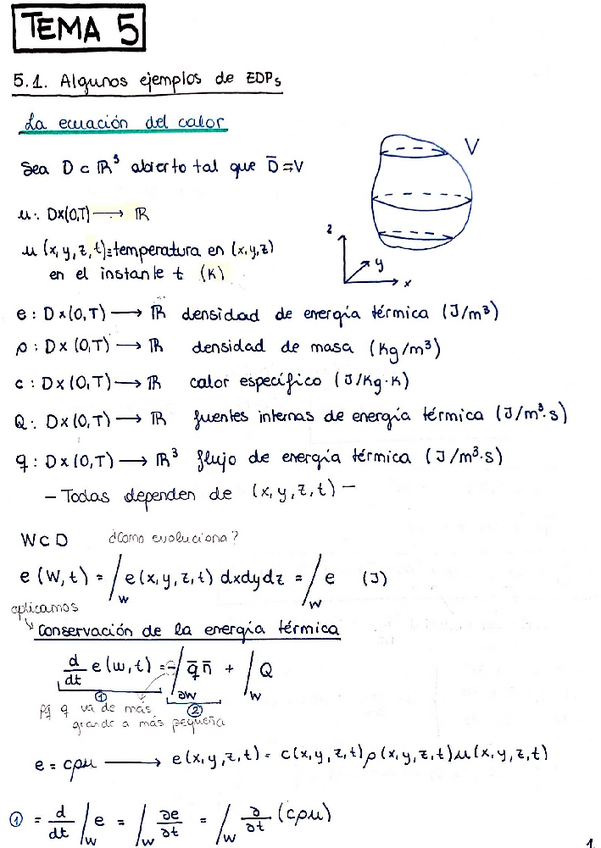 TEMA 5
5.1. Algunos ejemplos de EDPs
La ecuación del calor
Sea D ⊂ ℝ³ abierto tal que D̄ = V
V
u: Dx(0,T) ⟶ ℝ
u(x,y,z,t) = temperatura en (x,y,z)
en el instante t (K)
z
y
x
e : Dx(0,T) ⟶ ℝ densidad de energía térmica (J/m³)
ρ : Dx(0,T) ⟶ ℝ densidad de masa (Kg/m³)
c : Dx(0,T) ⟶ ℝ calor específico (J/Kg·K)
Q : Dx(0,T) ⟶ ℝ fuentes internas de energía térmica (J/m³·s)
q : Dx(0,T) ⟶ ℝ³ flujo de energía térmica (J/m³·s)
— Todas dependen de (x,y,z,t) —
W⊂D ¿Como evoluciona?
e(W,t) = ∫_W e(x,y,z,t) dxdydz = ∫_W e (J)
aplicamos
Conservación de la energía térmica
d/dt e(w,t) = -∫_∂W q̄ n̄ + ∫_W Q
① ②
pq q va de más
grande a más pequeña
e = cρu ⟶ e(x,y,z,t) = c(x,y,z,t)ρ(x,y,z,t)u(x,y,z,t)
① = d/dt ∫_W e = ∫_W ∂e/∂t = ∫_W ∂/∂t (cρu)
1